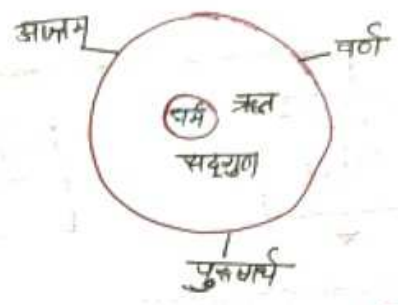 आश्रम
वर्ण
धर्म ऋत
सद्गुण
पुरुषार्थ